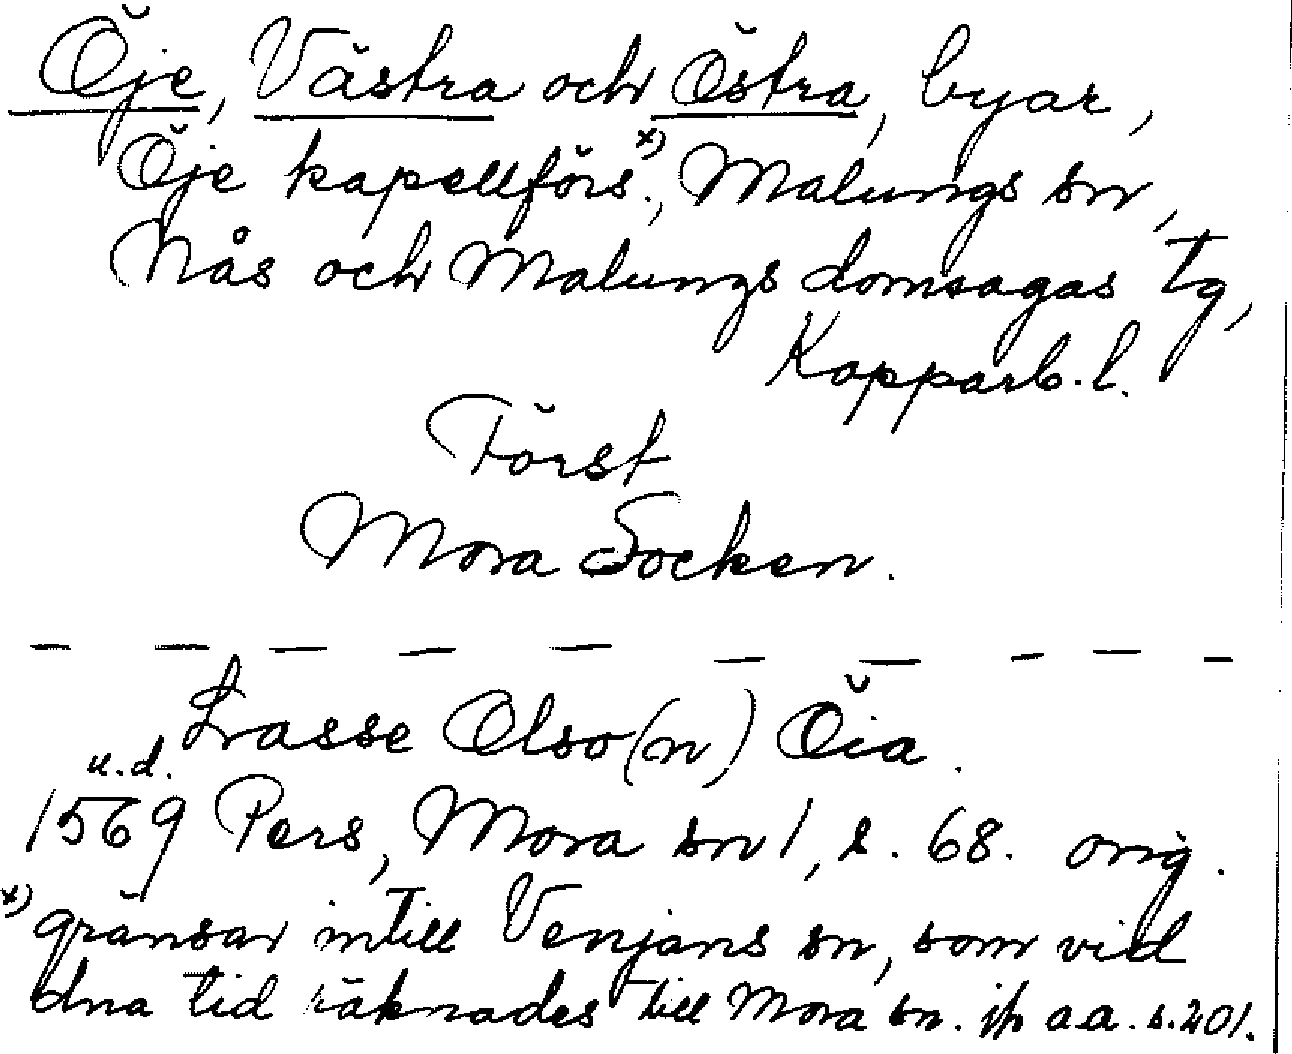 Öje, Västra och Östra, byar,
Öje kapellförs.x), Malungs sn,
Nås och Malungs domsagas tg,
Kopparb. l.
Först
Mora Socken.
Lasse Olso(n) Öia.
u.d.
1569 Pers, Mora sn 1, s. 68. orig.
x) gränsar intill Venjans sn, som vid
dna tid räknades till Mora sn. jfr a.a. s. 201.